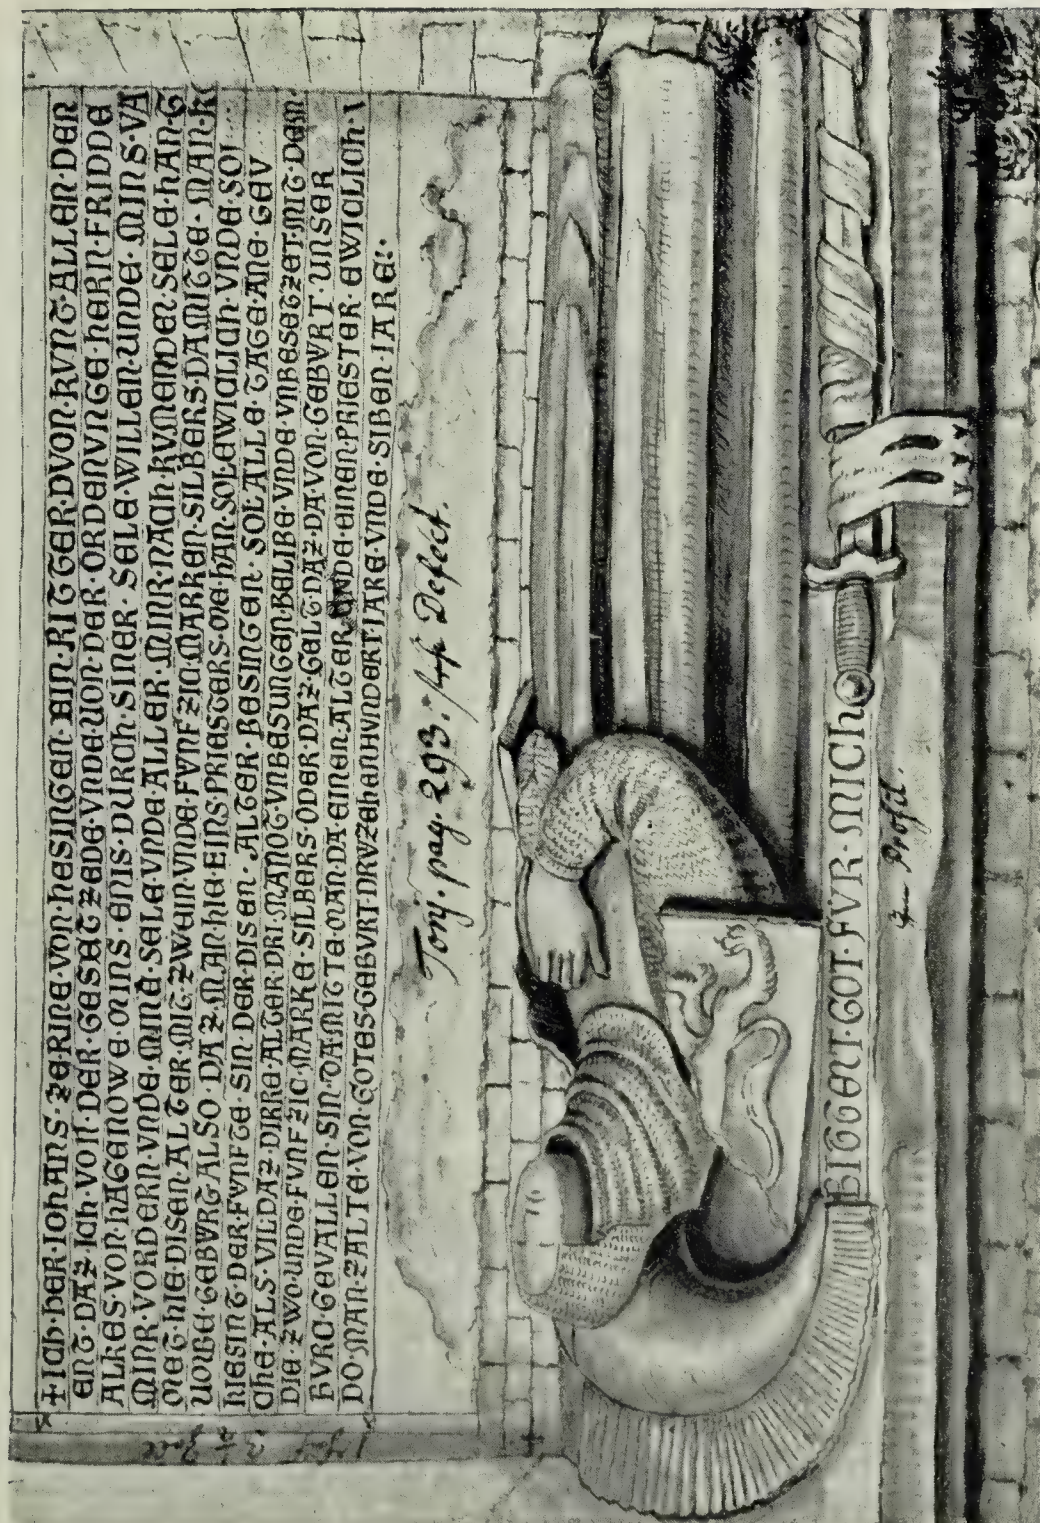 +ICH·HER·IOHANS·ZERINE·VON·HESINGEN·EIN·RITTER·DVON·KVNT·ALLEN·DEN
ENT·DAZ·ICH·VON·DER·GESETZEDE·VNDE·VON·DER·ORDENVNGE·HERN·FRIDDE
ALKES·VON·HAGENOWE·MINS·ENIS·DURCH·SINER·SELE·WILLEN·UNDE·MINS·VA
MINR·VORDERN·VNDE·MINE·SELE·VNDE·ALLER·MINR·NACH·KVMENDEN·SELE·HAN·G
MET·HIE·DISEN·ALTER·MIT·ZWEIN·VNDE·FVNFZIG·MARKEN·SILBERS·DAMITTE·MAN·K
GEBVRG·ALSO·DAZ·MAN·HIE·EINS·PRIESTERS·ME·HAN·SOL·EWICLICH·VNDE·SOL
NESINT·DER·FVNFTE·SIN·DER·DISEN·ALTER·BESINGEN·SOL·ALLE·TAGE·ANE·GEV
CHE·ALS·VIL·DAZ·DIRRE·ALTER·DRI·MANOT·VNBESUNGEN·BELIBE·VNDE·VNBESETZET·MIT·DEM·
DIE·ZWO·UNDE·FVNFZIC·MARKE·SILBERS·ODER·DAZ·GELT·DAZ·DA·VON·GEBVRT·UNSER
BVRC·GEVALLEN·SIN·DAMITTE·MAN·DA·EINEN·ALTER·UNDE·EINEN·PRIESTER·EWICLICH·
DO·MAN·ZALTE·VON·GOTES·GEBVRT·DRVZEHENHVNDERT·IARE·VNDE·SIBEN·IARE:·
pag. 293. Defect.
BIGGENT·GOT·FVR·MICH
Profil.